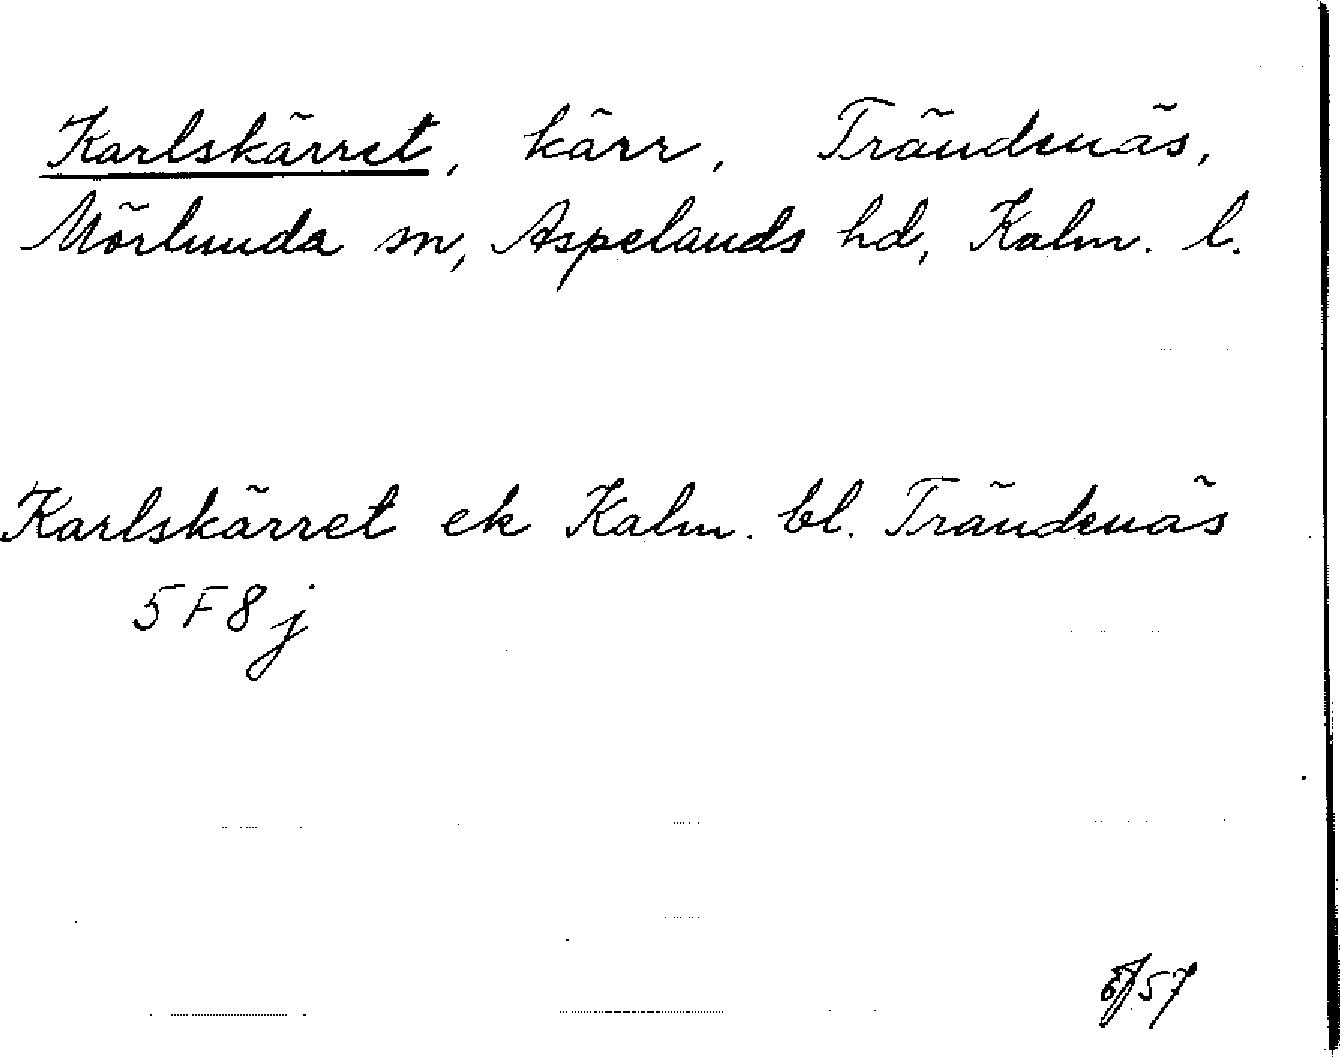 Karlskärret, kärr, Trändenäs,
Mörlunda sn, Aspelands hd, Kalm. l.
Karlskärret ek Kalm. bl. Trändenäs
5F8j